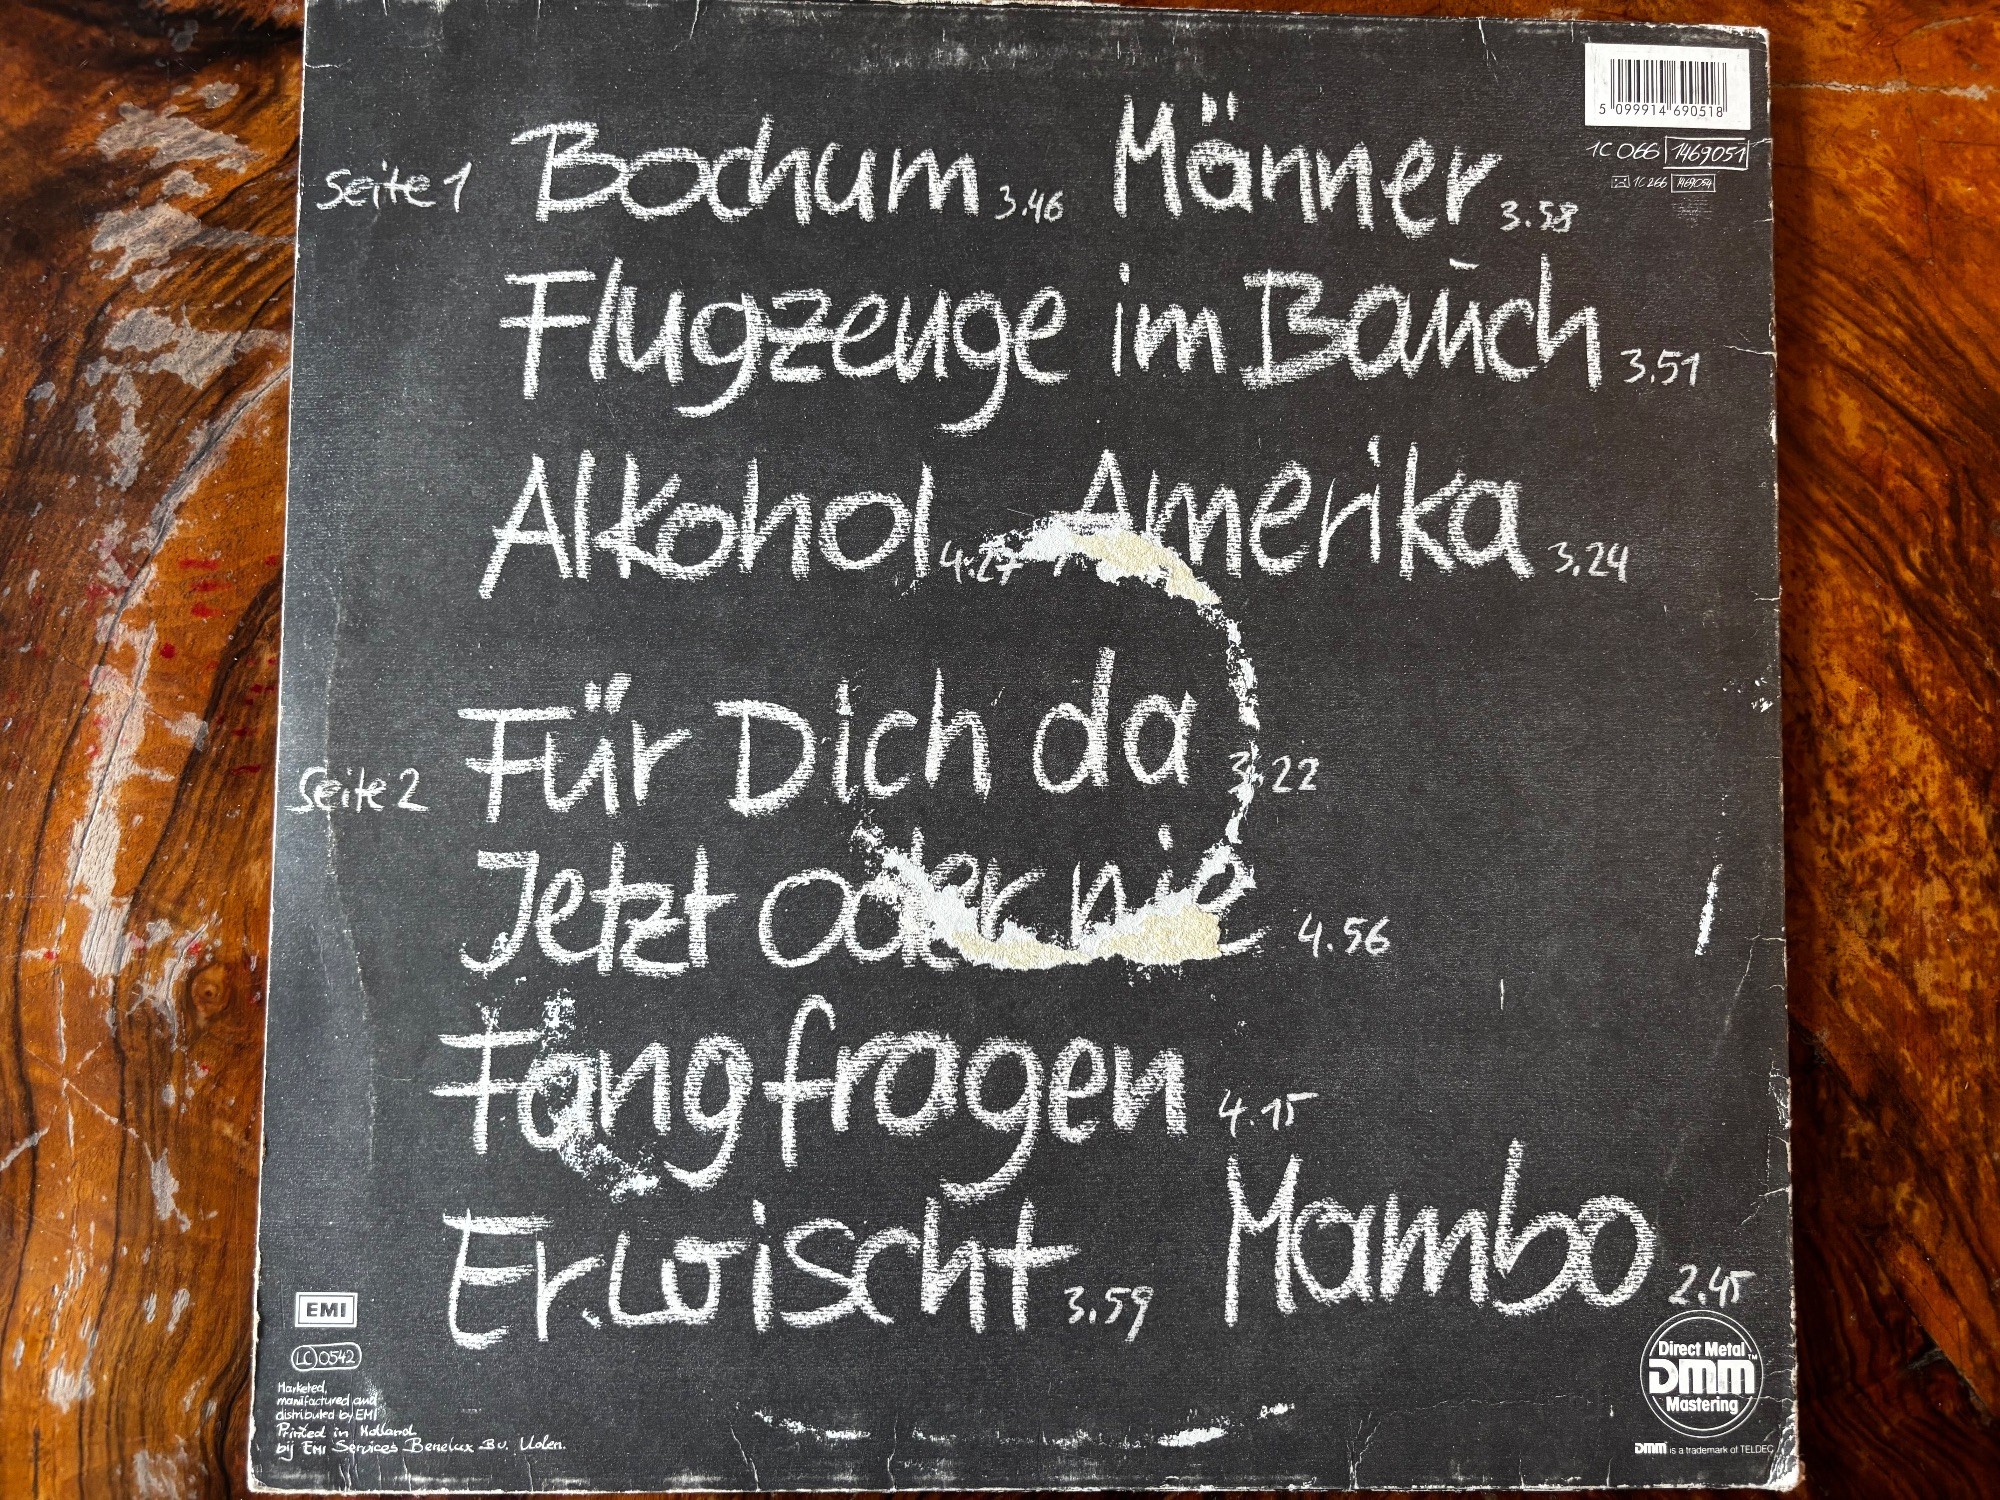 5 099914 690518
1C 066 1469051
1C 266 1469054
Seite 1 Bochum 3.46 Männer 3.58
Flugzeuge im Bauch 3.51
Alkohol 4.27 Amerika 3.24
Seite 2 Für Dich da 3.22
Jetzt oder nie 4.56
Fangfragen 4.15
Erwischt 3.59 Mambo 2.45
EMI
LC 0542
Marketed,
manufactured and
distributed by EMI
Printed in Holland
bij EMI Services Benelux B.V. Uden.
Direct Metal™
DMM
Mastering
DMM is a trademark of TELDEC